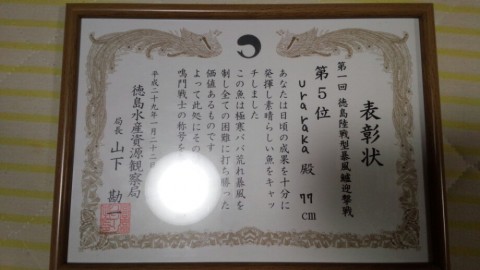 表彰状
第一回 徳島陸戦型暴風鱸迎撃戦
第5位
uraraka 殿 77cm
あなたは日頃の成果を十分に
発揮し素晴らしい魚をキャッ
チしました
この魚は極寒ババ荒れ暴風を
制し全ての困難に打ち勝った
価値あるものです
よって此処にその
鳴門戦士の称号を
平成二十九年一月二十二
徳島水産資源観察局
局長 山下 勘一